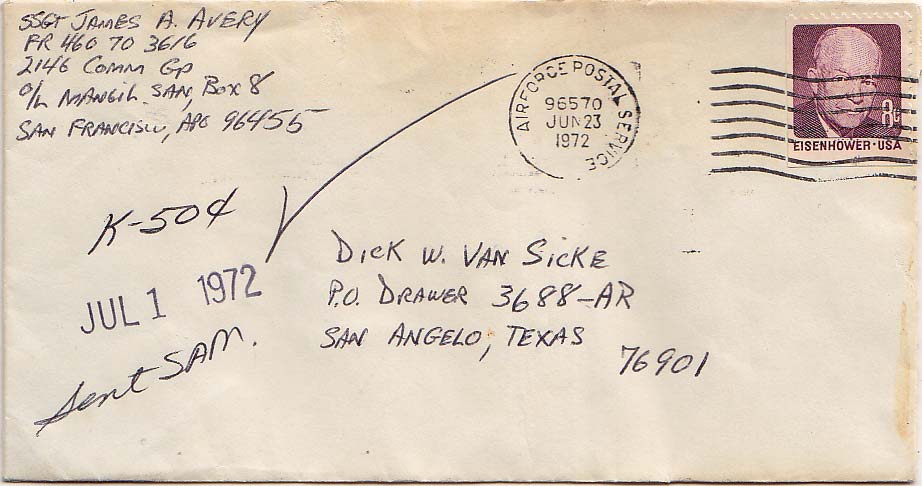 SSGT JAMES A. AVERY
FR 460 70 3616
2146 COMM GP
O/L MANGIL SAN, BOX 8
SAN FRANCISCO, APO 96455
AIR FORCE POSTAL SERVICE
96570
JUN 23
1972
8¢
EISENHOWER · USA
K-50¢
JUL 1 1972
Sent SAM.
DICK W. VAN SICKE
P.O. DRAWER 3688-AR
SAN ANGELO, TEXAS
76901